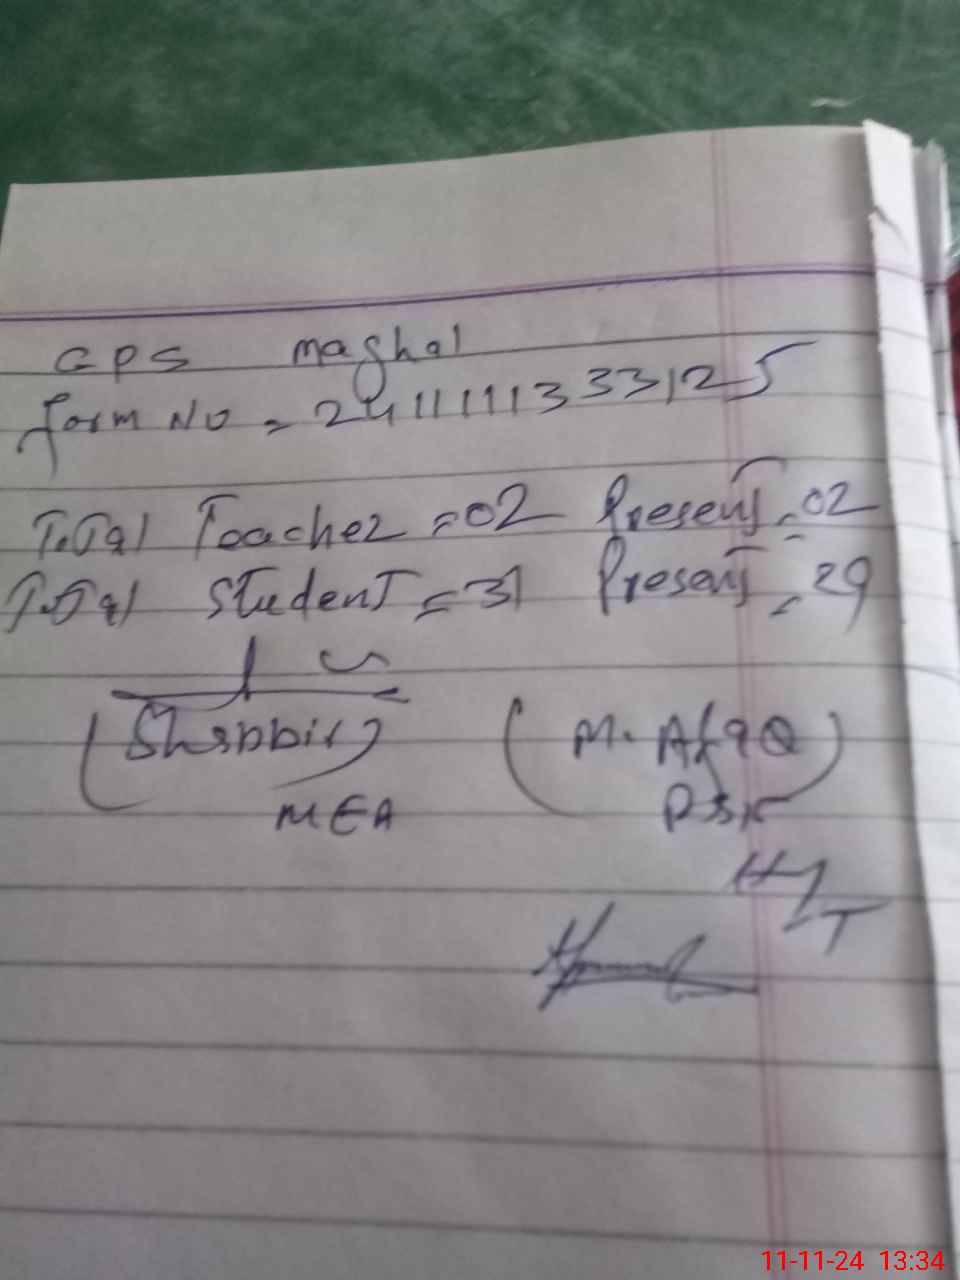 GPS maghal
form No = 24111113333125
Total Teacher = 02 Present = 02
Total Student = 31 Present = 29
(Shabbir) (M. Afaq)
MEA
H/T
11-11-24 13:34